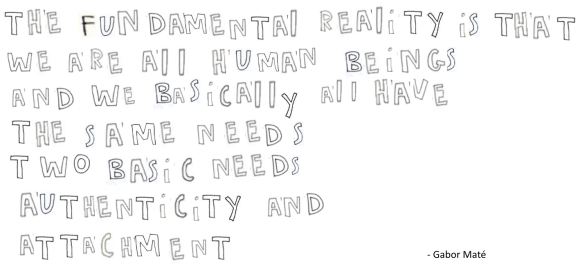 THE FUNDAMENTAl REAliTY iS THAT
WE ARE All HUMAN BEiNGS
AND WE BASiCAlly All HAVE
THE SAME NEEDS
TWO BASiC NEEDS
AUTHENTiCiTY AND
ATTACHMENT
- Gabor Maté